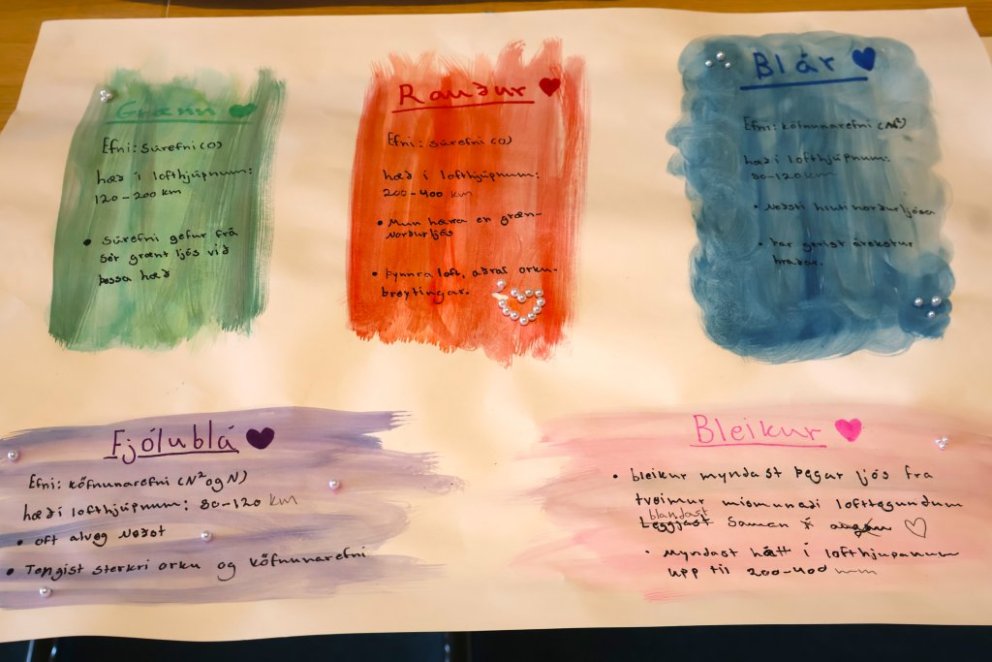 Grænn
Efni: Súrefni (O)
hæð í lofthjúpnum:
120-200 km
• Súrefni gefur frá
sér grænt ljós við
þessa hæð
Rauður
Efni: súrefni (O)
hæð í lofthjúpnum:
200-400 km
• Mun hærra en græn-
norðurljós
• Þynnra loft, aðrar orku-
breytingar.
Blár
Efni: köfnunarefni (N²)
hæð í lofthjúpnum:
80-120 km
• Neðsti hluti norðurljósa
• Þar gerist árekstur
hraðar.
Fjólublá
Efni: köfnunarefni (N² og N)
hæð í lofthjúpnum: 80-120 km
• oft alveg neðst
• Tengist sterkri orku og köfnunarefni
Bleikur
• bleikur myndast þegar ljós fra
tveimur mismunaði lofttegundum
blandast
leggjast saman í
• myndast hátt í lofthjupanum
upp til 200-400 mm